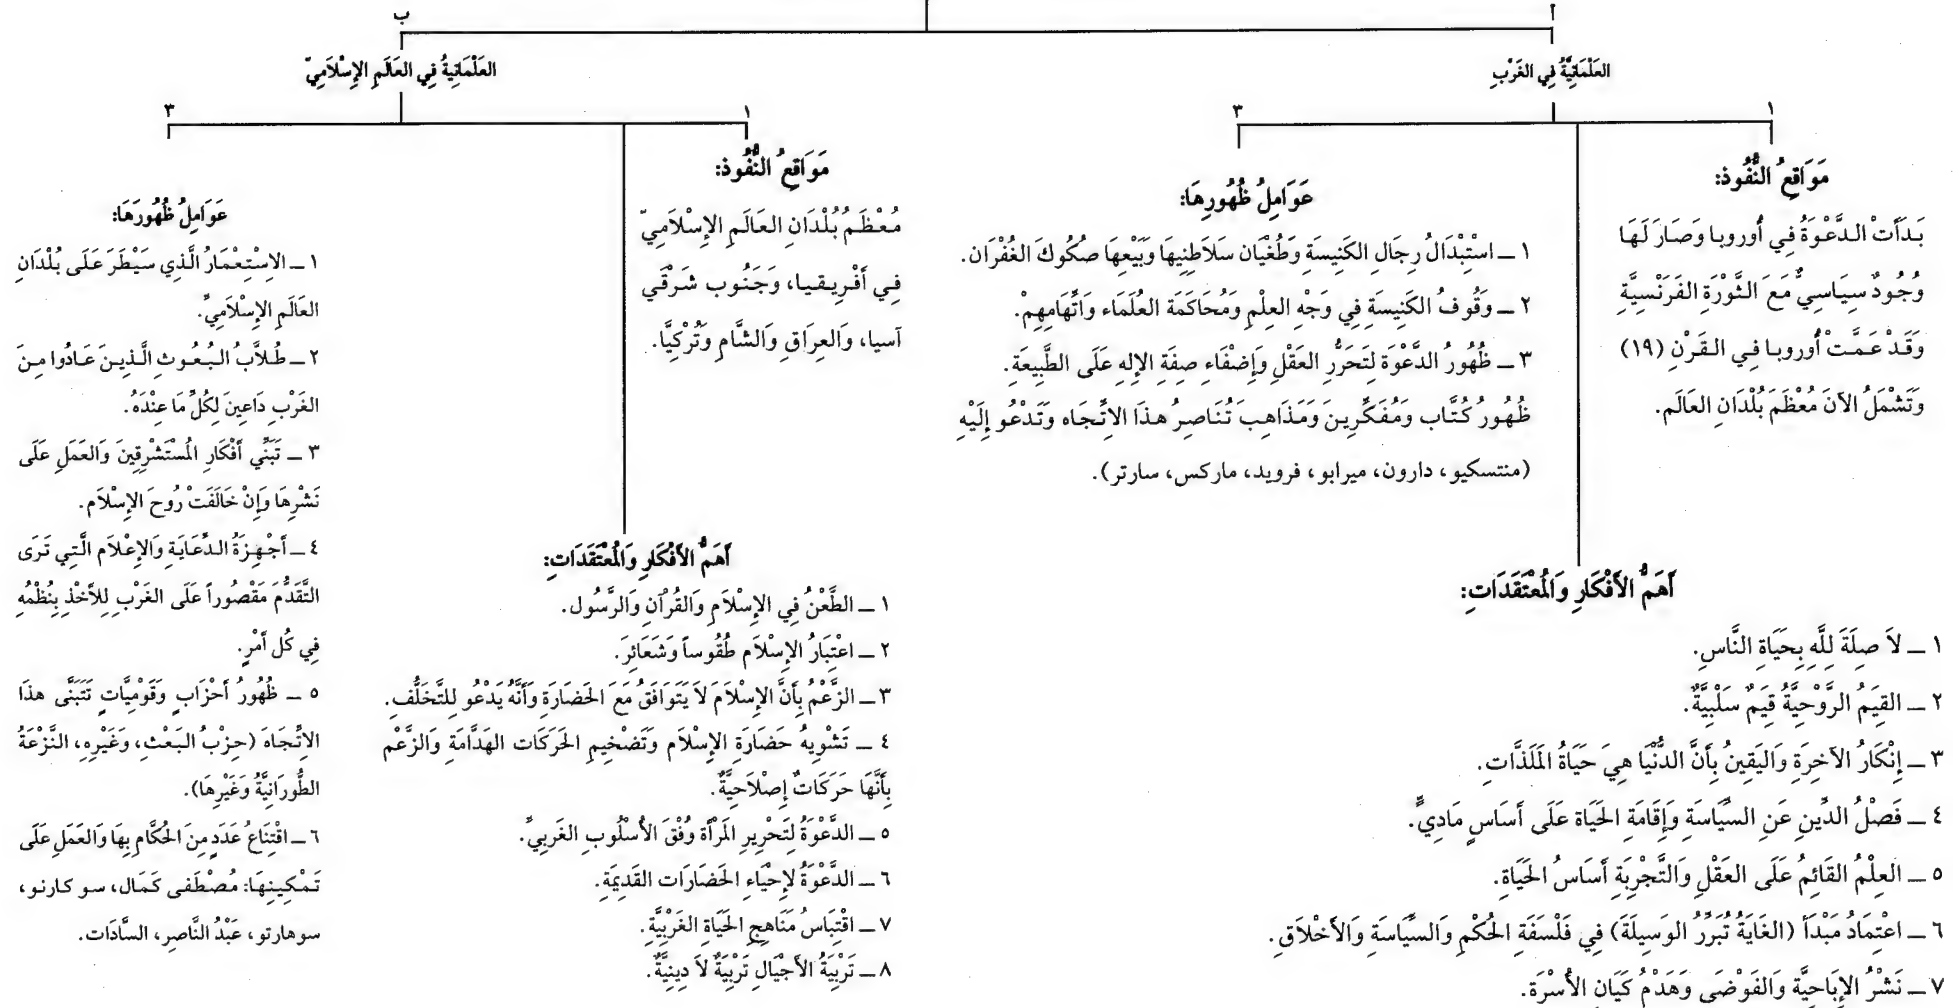 أ
العَلْمَانِيَّةُ فِي الغَرْبِ
١
مَوَاقِعُ النُّفُوذ:
بَدَأَتْ الدَّعْوَةُ فِي أُوروبا وَصَارَ لَهَا
وُجُودٌ سِيَاسِيٌّ مَعَ الثَّوْرَةِ الفَرَنْسِيَّةِ
وَقَدْ عَمَّتْ أُوروبا فِي القَرْنِ (١٩)
وَتَشْمَلُ الآنَ مُعْظَمَ بُلْدَانِ العَالَم.
٣
عَوَامِلُ ظُهُورِهَا:
١ ـ اسْتِبْدَالُ رِجَالِ الكَنِيسَةِ وَطُغْيَان سَلاَطِنِيهَا وَبَيْعِهَا صكُوكَ الغُفْرَان.
٢ ـ وَقُوفُ الكَنِيسَةِ فِي وَجْهِ العِلْمِ وَمُحَاكَمَة العُلَمَاء وَاتِّهَامِهِمْ.
٣ ـ ظُهُورُ الدَّعْوَة لِتَحَرُّرِ العَقْلِ وَإِضْفَاء صِفَةِ الإِله عَلَى الطَّبِيعَةِ.
ظُهُورُ كُتَّاب وَمُفَكِّرِينَ وَمَذَاهِبَ تُنَاصِرُ هذَا الاتِّجَاه وَتَدْعُو إِلَيْهِ
(منتسكيو، دارون، ميرابو، فرويد، ماركس، سارتر).
أَهَمُّ الأَفْكَارِ وَالمُعْتَقَدَاتِ:
١ ـ لاَ صِلَةَ لِلَّهِ بِحَيَاةِ النَّاسِ.
٢ ـ القِيَمُ الرَّوْحِيَّةُ قِيَمٌ سَلْبِيَّةٌ.
٣ ـ إِنْكَارُ الآخِرَةِ وَاليَقِينُ بِأَنَّ الدُّنْيَا هِيَ حَيَاةُ المَلَذَّاتِ.
٤ ـ فَصْلُ الدِّينِ عَنِ السِّيَاسَةِ وَإِقَامَةِ الحَيَاة عَلَى أَسَاسٍ مَادِيٍّ.
٥ ـ العِلْمُ القَائِمُ عَلَى العَقْلِ وَالتَّجْرِبَةِ أَسَاسُ الحَيَاةِ.
٦ ـ اعْتِمَادُ مَبْدَأ (الغَايَةُ تُبَرِّرُ الوَسِيلَةَ) فِي فَلْسَفَةِ الحُكْمِ وَالسِّيَاسَةِ وَالأَخْلاَقِ.
٧ ـ نَشْرُ الإِبَاحِيَّةِ وَالفَوْضَى وَهَدْمُ كَيَانِ الأُسْرَة.
ب
العَلْمَانِيَةُ فِي العَالَمِ الإِسْلاَمِيّ
١
مَوَاقِعُ النُّفُوذ:
مُعْظَمُ بُلْدَانِ العَالَمِ الإِسْلاَمِيّ
فِي أَفْرِيقيا، وَجَنُوب شَرْقَي
آسيا، وَالعِرَاقِ وَالشَّامِ وَتُرْكِيَّا.
أَهَمُّ الأَفْكَارِ وَالمُعْتَقَدَاتِ:
١ ـ الطَّعْنُ فِي الإِسْلاَمِ وَالقُرْآنِ وَالرَّسُول.
٢ ـ اعْتِبَارُ الإِسْلاَم طُقُوساً وَشَعَائِرَ.
٣ ـ الزَّعْمُ بِأَنَّ الإِسْلاَمَ لاَ يَتَوَافَقُ مَعَ الحَضَارَةِ وَأَنَّهُ يَدْعُو لِلتَّخَلُّف.
٤ ـ تَشْوِيهُ حَضَارَةِ الإِسْلاَمِ وَتَضْخِيمِ الحَرَكَات الهَدَّامَةِ وَالزَّعْم
بِأَنَّهَا حَرَكَاتٌ إِصْلاَحِيَّةٌ.
٥ ـ الدَّعْوَةُ لِتَحْرِيرِ المَرْأَة وُفْقَ الأُسْلُوب الغَرْبِيِّ.
٦ ـ الدَّعْوَةُ لإِحْيَاءِ الحَضَارَات القَدِيمَةِ.
٧ ـ اقْتِبَاسُ مَنَاهِجِ الحَيَاةِ الغَرْبِيَّةِ.
٨ ـ تَرْبِيَةُ الأَجْيَالِ تَرْبِيَةً لاَ دِينِيَّةً.
٣
عَوَامِلُ ظُهُورَهَا:
١ ـ الاِسْتِعْمَارُ الَّذِي سَيْطَرَ عَلَى بُلْدَانِ
العَالَمِ الإِسْلاَمِيِّ.
٢ ـ طُلاَّبُ البُعُوثِ الَّذِينَ عَادُوا مِنَ
الغَرْبِ دَاعِينَ لِكُلِّ مَا عِنْدَهُ.
٣ ـ تَبَنِّي أَفْكَارِ المُسْتَشْرِقِينَ وَالعَمَلِ عَلَى
نَشْرِهَا وَإِنْ خَالَفَتْ رُوحَ الإِسْلاَم.
٤ ـ أَجْهِزَةُ الدِّعَايَةِ وَالإِعْلاَم الَّتِي تَرَى
التَّقَدُّمَ مَقْصُوراً عَلَى الغَرْبِ لِلأَخْذِ بِنُظْمِهِ
فِي كُل أَمْرٍ.
٥ ـ ظُهُورُ أَحْزَابٍ وَقَوْمِيَّاتٍ تَتَبَنَّى هذَا
الاِتِّجَاهَ (حِزْبُ البَعْثِ، وَغَيْرِهِ، النَّزْعَةُ
الطُّورَانِيَّةُ وَغَيْرِهَا).
٦ ـ اقْتِنَاعُ عَدَدٍ مِنَ الحُكَّامِ بِهَا وَالعَمَلِ عَلَى
تَمْكِينِهَا: مُصْطَفى كَمَال، سو كارنو،
سوهارتو، عَبْدُ النَّاصِر، السَّادَات.